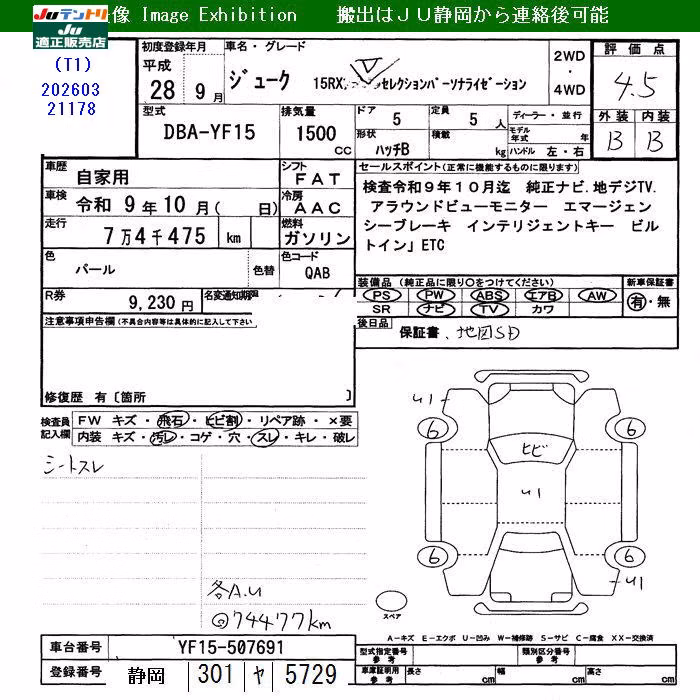 JUテントリ
JU適正販売店
像 Image Exhibition 搬出はJU静岡から連絡後可能
(T1)
202603
21178
初度登録年月
平成
28年9月
車名・グレード
ジューク 15RX
セレクションパーソナライゼーション
2WD
・
4WD
評価点
4.5
型式
DBA-YF15
排気量
1500
CC
ドア 5
定員 5 人
ディーラー・並行
形状
ハッチB
積載 kg
モデル年式 年
ハンドル 左・右
外装 内装
B B
車歴
自家用
シフト
FAT
車検
令和 9年10月( 日)
冷房
AAC
走行
7万4千475 km
燃料
ガソリン
色
パール
色替
色コード
QAB
セールスポイント(正常に機能するものに限ります)
検査令和9年10月迄 純正ナビ.地デジTV.
アラウンドビューモニター エマージェン
シーブレーキ インテリジェントキー ビル
トイン」ETC
R券
9,230円
名変通知期限
装備品 (純正品に限り○をつけてください)
PS PW ABS エアB AW
SR ナビ TV カワ
新車保証書
有・無
後日品
保証書、地図SD
注意事項申告欄(不具合内容等は具体的に記入して下さい)
修復歴 有〔箇所 〕
検査員記入欄
FW キズ・飛石・ヒビ割・リペア跡・×要
内装 キズ・汚レ・コゲ・穴・スレ・キレ・破レ
シートスレ
各A.U
◎74477km
U1
6 6
ヒビ
U1
6 6
U1
スペア
A-キズ E-エクボ U-凹み W-補修跡 S-サビ C-腐食 XX-交換済
車台番号
YF15-507691
登録番号
静岡 301 ヤ 5729
型式指定番号
参考
類別区分番号
参考
車庫証明用
参考
長さ cm
幅 cm
高さ cm